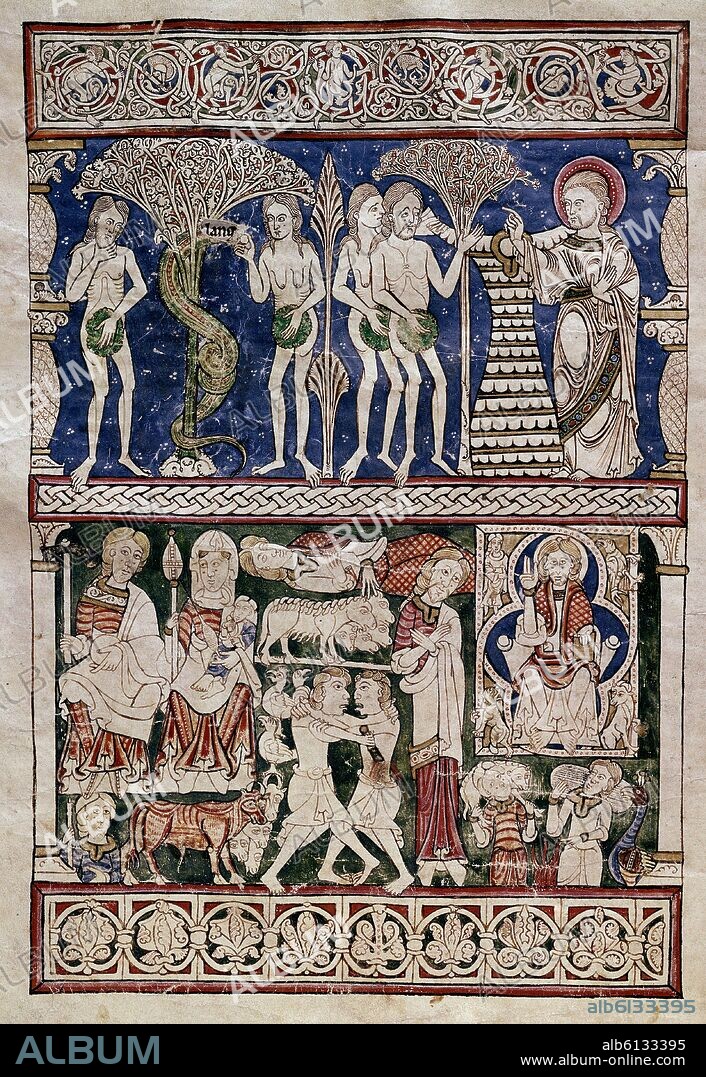 lang
alb6133395
ALBUM
alb6133395
www.album-online.com